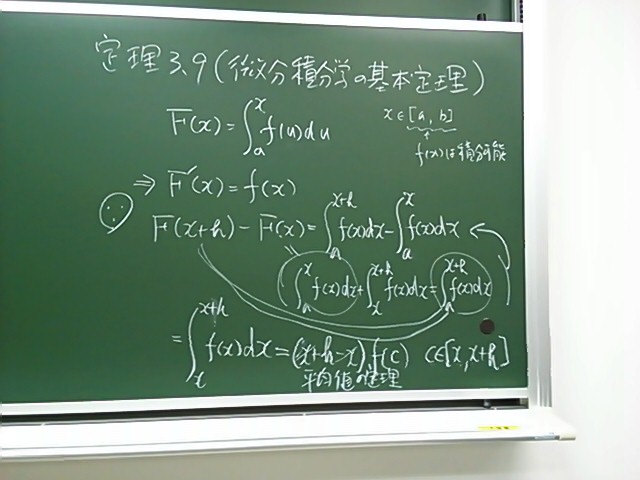 定理3.9(微分積分学の基本定理)
F(x)=∫_a^x f(u)du
x∈[a,b]
f(x)は積分可能
⇒ F'(x)=f(x)
∵ F(x+h)-F(x)=∫_a^{x+h} f(x)dx-∫_a^x f(x)dx
∫_a^x f(x)dx+∫_x^{x+h} f(x)dx=∫_a^{x+h} f(x)dx
=∫_x^{x+h} f(x)dx=(x+h-x)f(c) c∈[x,x+h]
平均値の定理